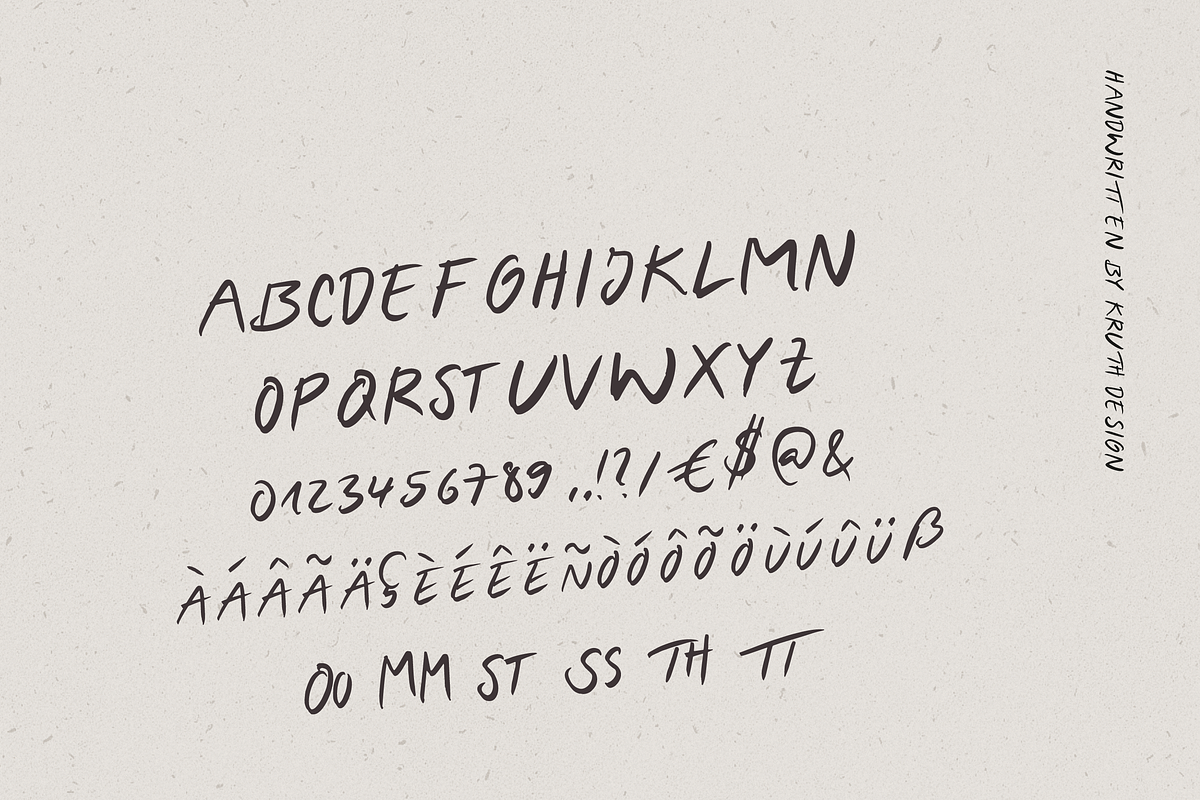 ABCDEFGHIJKLMN
OPQRSTUVWXYZ
0123456789 ,.!?/€$@&
ÀÁÂÃÄÇÈÉÊËÑÒÓÔÕÖÙÚÛÜß
OO MM ST SS TH TT
HANDWRITTEN BY KRUTH DESIGN